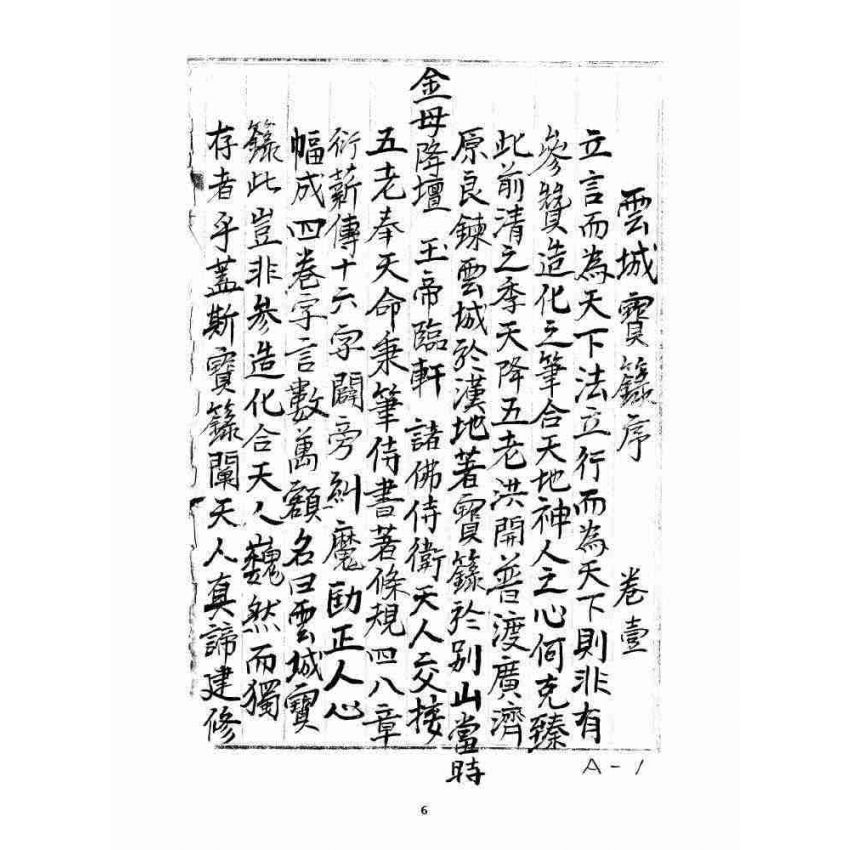 雲城寶籙序 卷壹
立言而為天下法立行而為天下則非有
參贊造化之筆合天地神人之心何克臻
此前清之季天降五老洪開普渡廣濟
原良鍊雲城於漢地著寶籙於别山當時
金母降壇 玉帝臨軒 諸佛侍衛天人交接
五老奉天命秉筆侍書著條規四八章
衍薪傳十六字闢旁糾魔勖正人心
幅成四卷字言數萬額名曰雲城寶
籙此豈非參造化合天人巍然而獨
存者乎蓋斯寶籙闡天人真諦建修
A-1
6